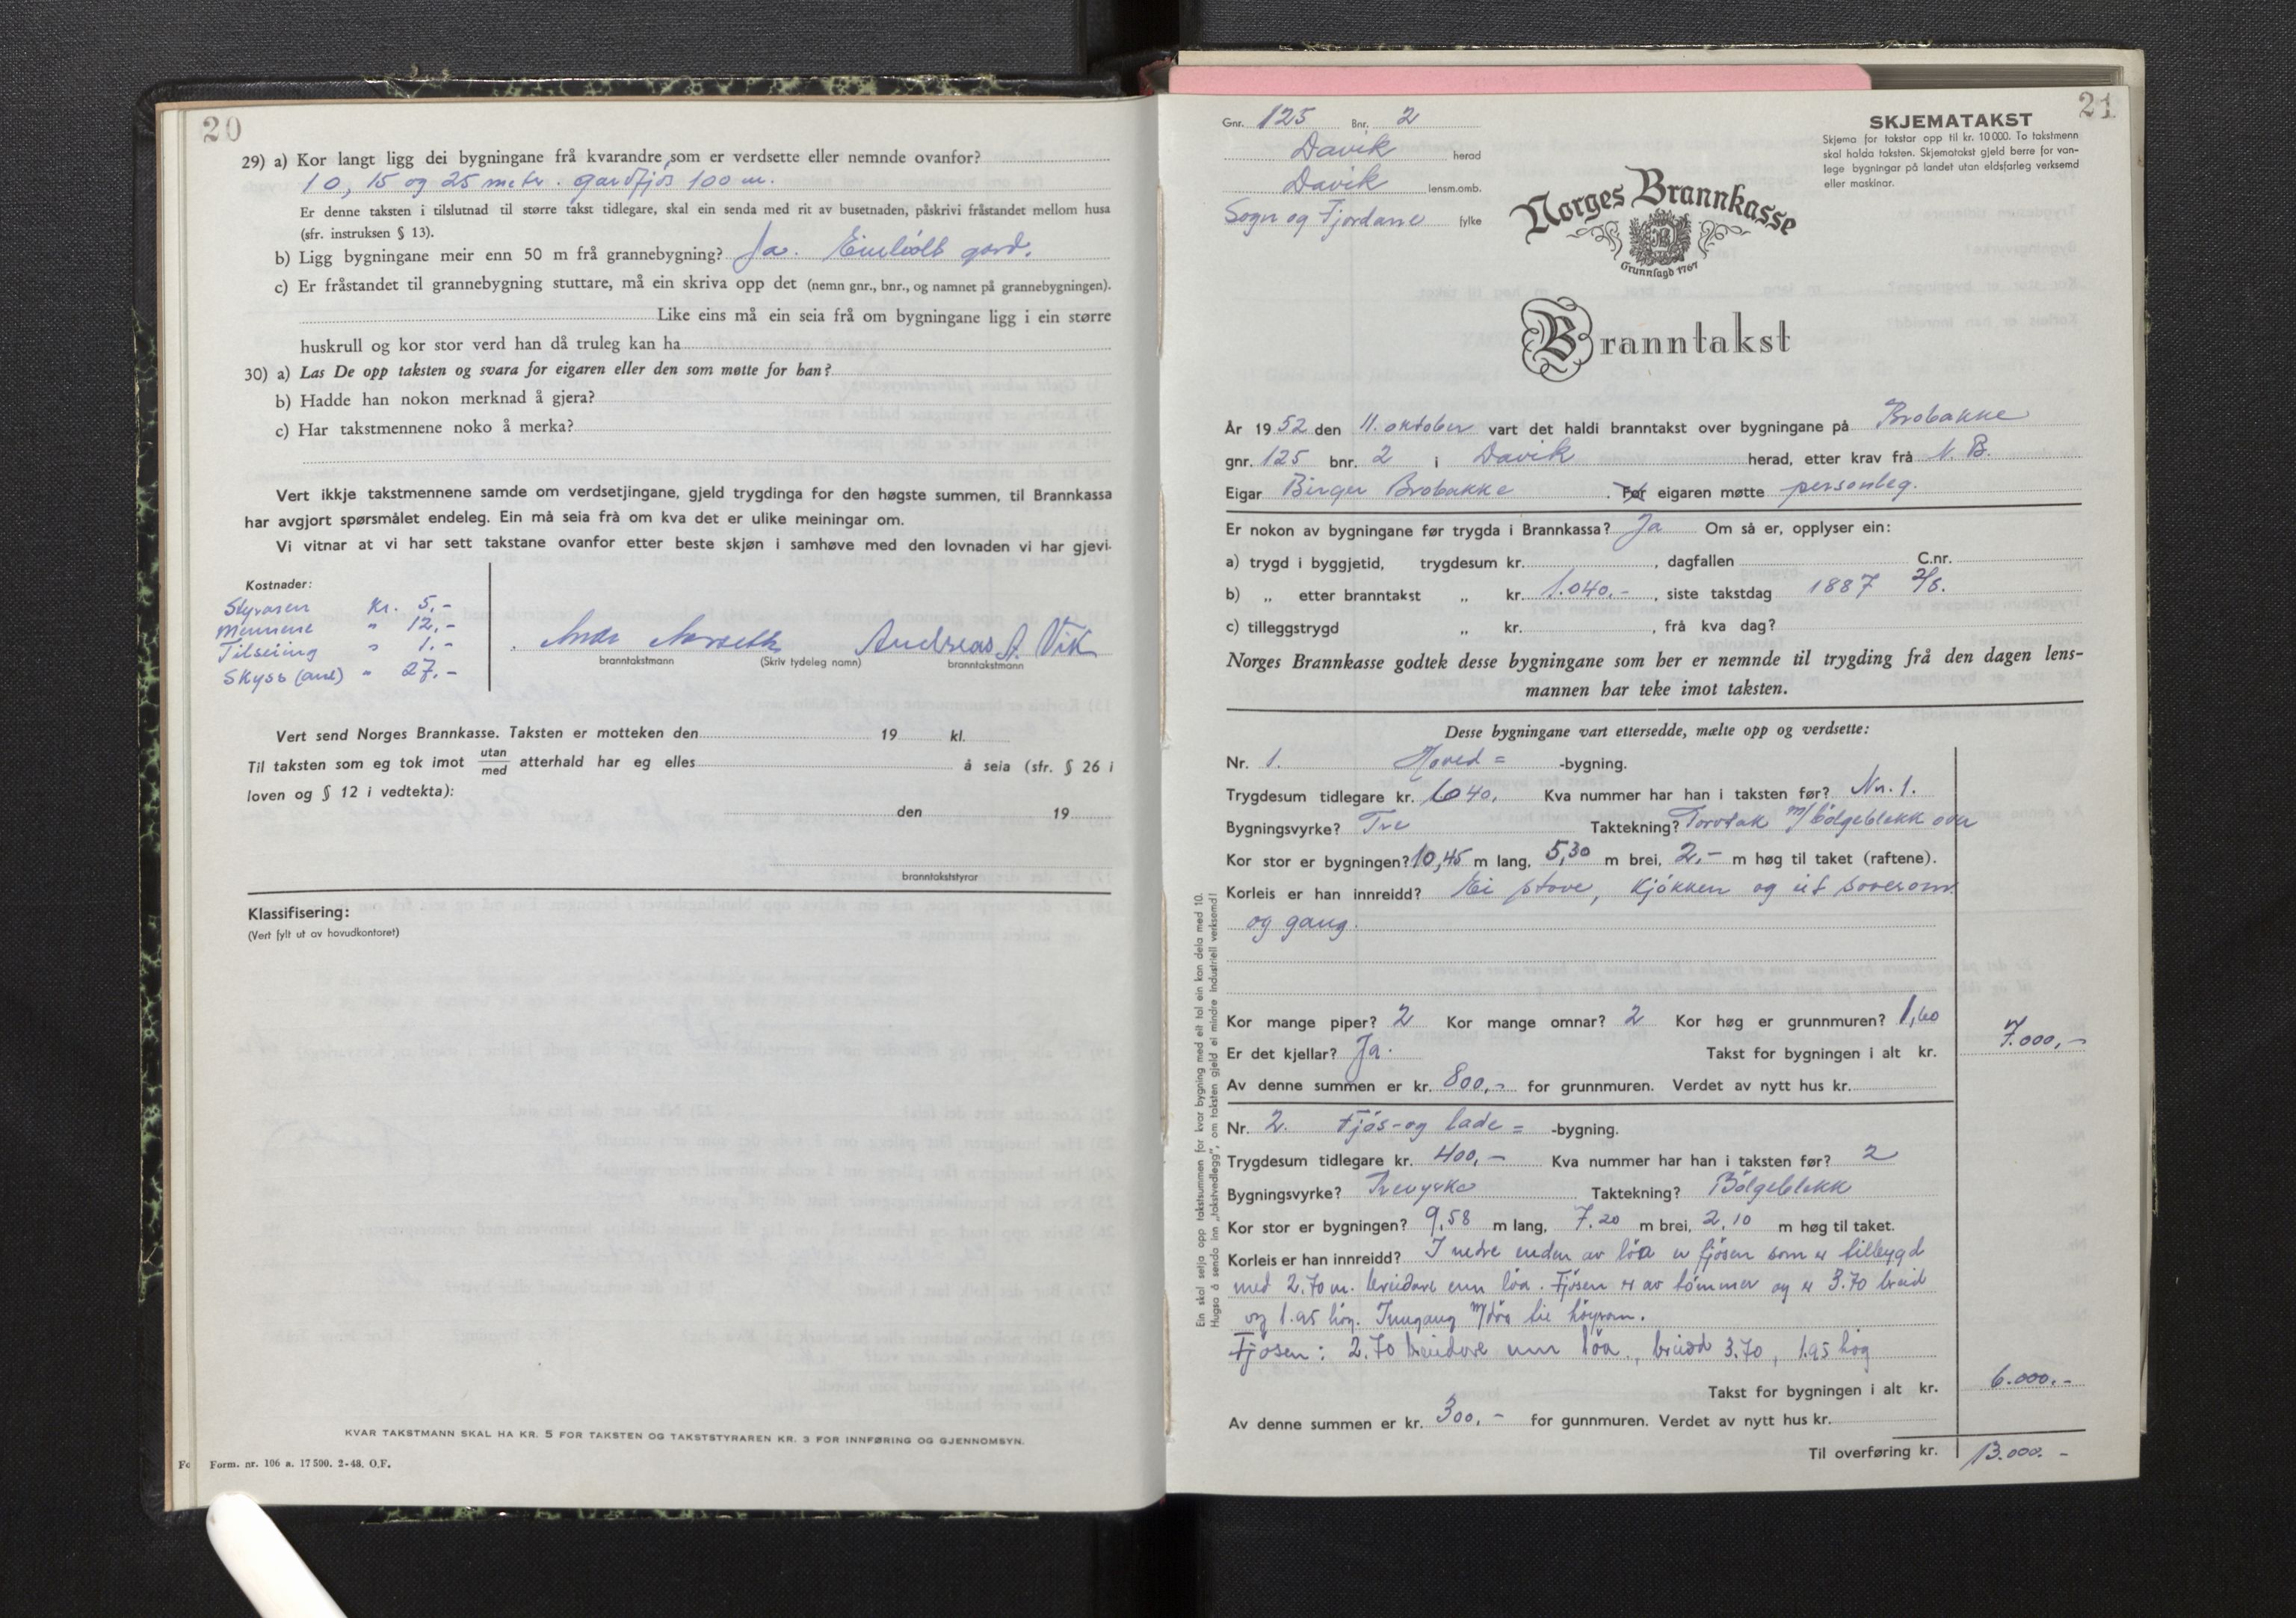 20
29) a) Kor langt ligg dei bygningane frå kvarandre, som er verdsette eller nemnde ovanfor?
10, 15 og 25 meter. Gardfjøs 100 m.
Er denne taksten i tilslutnad til større takst tidlegare, skal ein senda med rit av busetnaden, påskrivi fråstandet mellom husa
(sfr. instruksen § 13).
b) Ligg bygningane meir enn 50 m frå grannebygning? Ja. Einbølt gard.
c) Er fråstandet til grannebygning stuttare, må ein skriva opp det (nemn gnr., bnr., og namnet på grannebygningen).
Like eins må ein seia frå om bygningane ligg i ein større
huskrull og kor stor verd han då truleg kan ha
30) a) Las De opp taksten og svara for eigaren eller den som møtte for han?
b) Hadde han nokon merknad å gjera?
c) Har takstmennene noko å merka?
Vert ikkje takstmennene samde om verdsetjingane, gjeld trygdinga for den høgste summen, til Brannkassa
har avgjort spørsmålet endeleg. Ein må seia frå om kva det er ulike meiningar om.
Vi vitnar at vi har sett takstane ovanfor etter beste skjøn i samhøve med den lovnaden vi har gjevi.
Kostnader:
Styraren kr. 5,-
Mennene " 12,-
Tilseing " 1,-
Skyss " 27,-
Andreas A. Vik
branntakstmann (Skriv tydeleg namn) branntakstmann
Vert send Norges Brannkasse. Taksten er motteken den 19 kl.
Til taksten som eg tok imot utan/med atterhald har eg elles å seia (sfr. § 26 i
loven og § 12 i vedtekta):
den 19
branntakststyrar
Klassifisering:
(Vert fylt ut av hovudkontoret)
KVAR TAKSTMANN SKAL HA KR. 5 FOR TAKSTEN OG TAKSTSTYRAREN KR. 3 FOR INNFØRING OG GJENNOMSYN.
Fo Form. nr. 106 a. 17 500. 2-48. O.F.
21
Gnr. 125 Bnr. 2
Davik herad
Davik lensm.omb.
Sogn og Fjordane fylke
SKJEMATAKST
Skjema for takstar opp til kr. 10 000. To takstmenn
skal halda taksten. Skjematakst gjeld berre for van-
lege bygningar på landet utan eldsfarleg verksemd
eller maskinar.
Norges Brannkasse
Grunnlagd 1767
Branntakst
År 1952 den 11. oktober vart det haldi branntakst over bygningane på Brobakke
gnr. 125 bnr. 2 i Davik herad, etter krav frå N. B.
Eigar Birger Brobakke. For eigaren møtte personleg.
Er nokon av bygningane før trygda i Brannkassa? Ja Om så er, opplyser ein:
a) trygd i byggjetid, trygdesum kr. , dagfallen C.nr.
b) „ etter branntakst „ kr. 1.040.- , siste takstdag 1887 2/8.
c) tilleggstrygd „ kr. , frå kva dag?
Norges Brannkasse godtek desse bygningane som her er nemnde til trygding frå den dagen lens-
mannen har teke imot taksten.
Desse bygningane vart ettersedde, mælte opp og verdsette:
Nr. 1. Hoved = -bygning.
Trygdesum tidlegare kr. 640. Kva nummer har han i taksten før? Nr. 1.
Bygningsvyrke? Tre Taktekning? Torvtak m/bölgeblekk over
Kor stor er bygningen? 10,45 m lang, 5,30 m brei, 2,- m høg til taket (raftene).
Korleis er han innreidd? Ei stove, kjökken og eit soverom
og gang.
Kor mange piper? 2 Kor mange omnar? 2 Kor høg er grunnmuren? 1,60
Er det kjellar? Ja. Takst for bygningen i alt kr. 7.000,-
Av denne summen er kr. 800,- for grunnmuren. Verdet av nytt hus kr.
Nr. 2. Fjøs- og lade = -bygning.
Trygdesum tidlegare kr. 400,- Kva nummer har han i taksten før? 2
Bygningsvyrke? Trevyrke Taktekning? Bölgeblekk
Kor stor er bygningen? 9,58 m lang, 7.20 m brei, 2.10 m høg til taket.
Korleis er han innreidd? I nedre enden av löa er fjösen som er tilbygd
med 2.70 m. breidare enn löa. Fjösen er av tömmer og er 3.70 breid
og 1.95 hög. Inngang m/dör til höyrom.
Fjösen: 2.70 breidare enn löa, breidd 3.70, 1.95 hög
Takst for bygningen i alt kr. 6.000.-
Av denne summen er kr. 300,- for gunnmuren. Verdet av nytt hus kr.
Til overføring kr. 13.000.-
Ein skal setja opp takstsummen for kvar bygning med eit tal ein kan dela med 10.
Hugsa å senda inn „takstvedlegg”, om taksten gjeld ei mindre industriell verksemd!